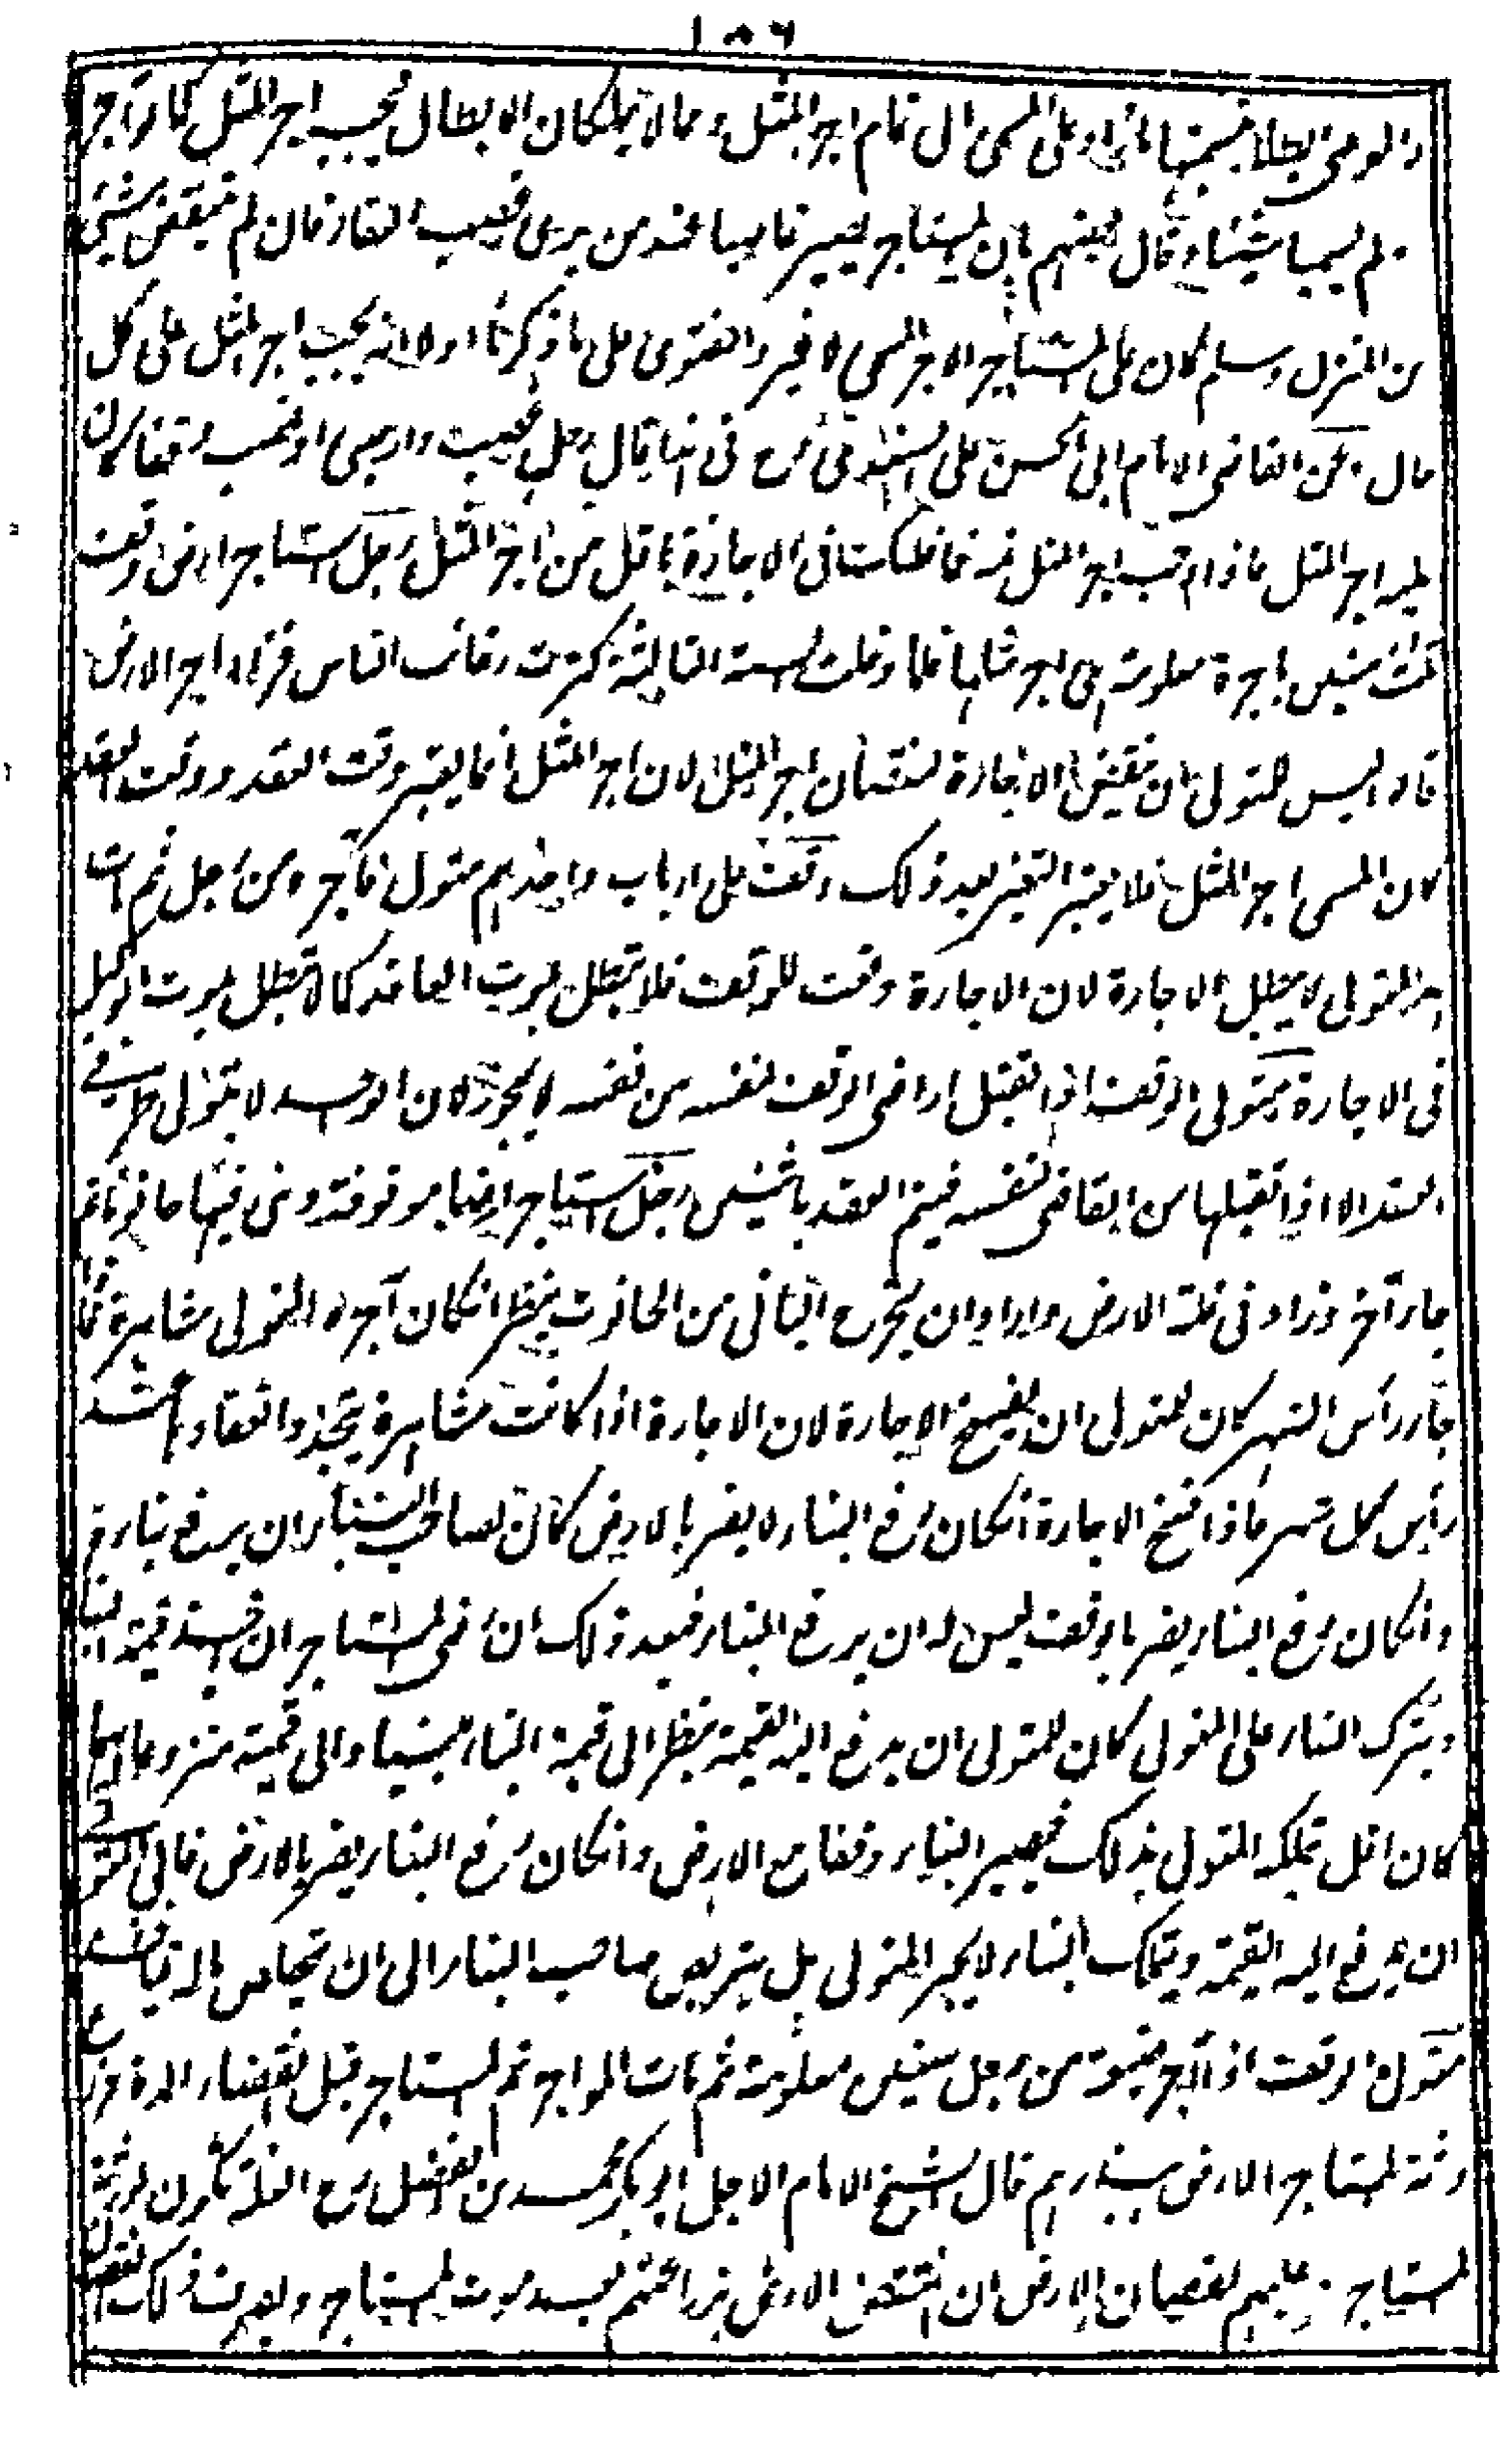 ١٨٦
والوصى ابطلا بتسميتهما ما زاد على المسمى الى تمام اجر المثل وما لا يملكان الابطال فيجب اجر المثل كما لو آجر
ولم يسميا شيئا وقال بعضهم بان المستاجر يصير غاصبا عند من يرى غصب العقار فان لم ينتقص شئ
من المنزل وسلم كان على المستاجر الاجر المسمى لا غير والفتوى على ما ذكرنا اولا انه يجب اجر المثل على كل
حال وعن القاضى الامام ابى الحسن على السغدى رح فى هذا قال رجل غصب دار صبى او غصب وقفا كان
عليه اجر المثل فاذا وجب اجر المثل ثمه فما ظنك فى الاجارة باقل من اجر المثل رجل استاجر ارض وقف
ثلث سنين باجرة معلومة هى اجر مثلها فلما دخلت السنة الثانية كثرت رغائب الناس فزاد اجر الارض
قالوا ليس للمتولى ان ينقض الاجارة لنقصان اجر المثل لان اجر المثل انما يعتبر وقت العقد ووقت العقد
كان المسمى اجر المثل فلا يعتبر التغير بعد ذلك وقف على ارباب واحدهم متول فآجره من رجل ثم مات
هذا المتولى لا يبطل الاجارة لان الاجارة وقعت للوقف فلا تبطل بموت العاقد كما لا تبطل بموت الوكيل
فى الاجارة متولى الوقف اذا تقبل اراضى الوقف لنفسه من نفسه لا يجوز لان الواحد لا يتولى طرفى
العقد الا اذا تقبلها من القاضى لنفسه فيتم العقد باثنين رجل استاجر ارضا موقوفة وبنى فيها حانوتا ثم
جاء آخر وزاد فى غلة الارض واراد ان يخرج البانى من الحانوت ينظر انكان آجره المتولى مشاهرة فاذا
جاء رأس الشهر كان للمتولى ان يفسخ الاجارة لان الاجارة اذا كانت مشاهرة يتجدد انعقادها عند
رأس كل شهر فاذا فسخ الاجارة انكان رفع البناء لا يضر بالارض كان لصاحب البناء ان يرفع بناءه
وانكان رفع البناء يضر بالوقف ليس له ان يرفع البناء فبعد ذلك ان رضى المستاجر ان ياخذ قيمة البناء
ويترك البناء على المتولى كان للمتولى ان يدفع اليه القيمة ينظر الى قيمة البناء مبنيا والى قيمته منزوعا ايهما
كان اقل تملكه المتولى بذلك فيصير البناء وقفا مع الارض وانكان رفع البناء يضر بالارض فابى المتولى
ان يدفع اليه القيمة ويتملك البناء لا يجبر المتولى بل يتربص صاحب البناء الى ان يتخلص ماله فياخذه
متولى الوقف اذا آجر ضيعة من رجل سنين معلومة ثم مات المواجر ثم المستاجر قبل انقضاء المدة فزرع
ورثة المستاجر الارض ببذرهم قال الشيخ الامام الاجل ابو بكر محمد بن الفضل رح الغلة تكون لورثة
المستاجر وعليهم نقصان الارض ان انتقص الارض بزراعتهم بعد موت المستاجر ويصرف ذلك النقصان